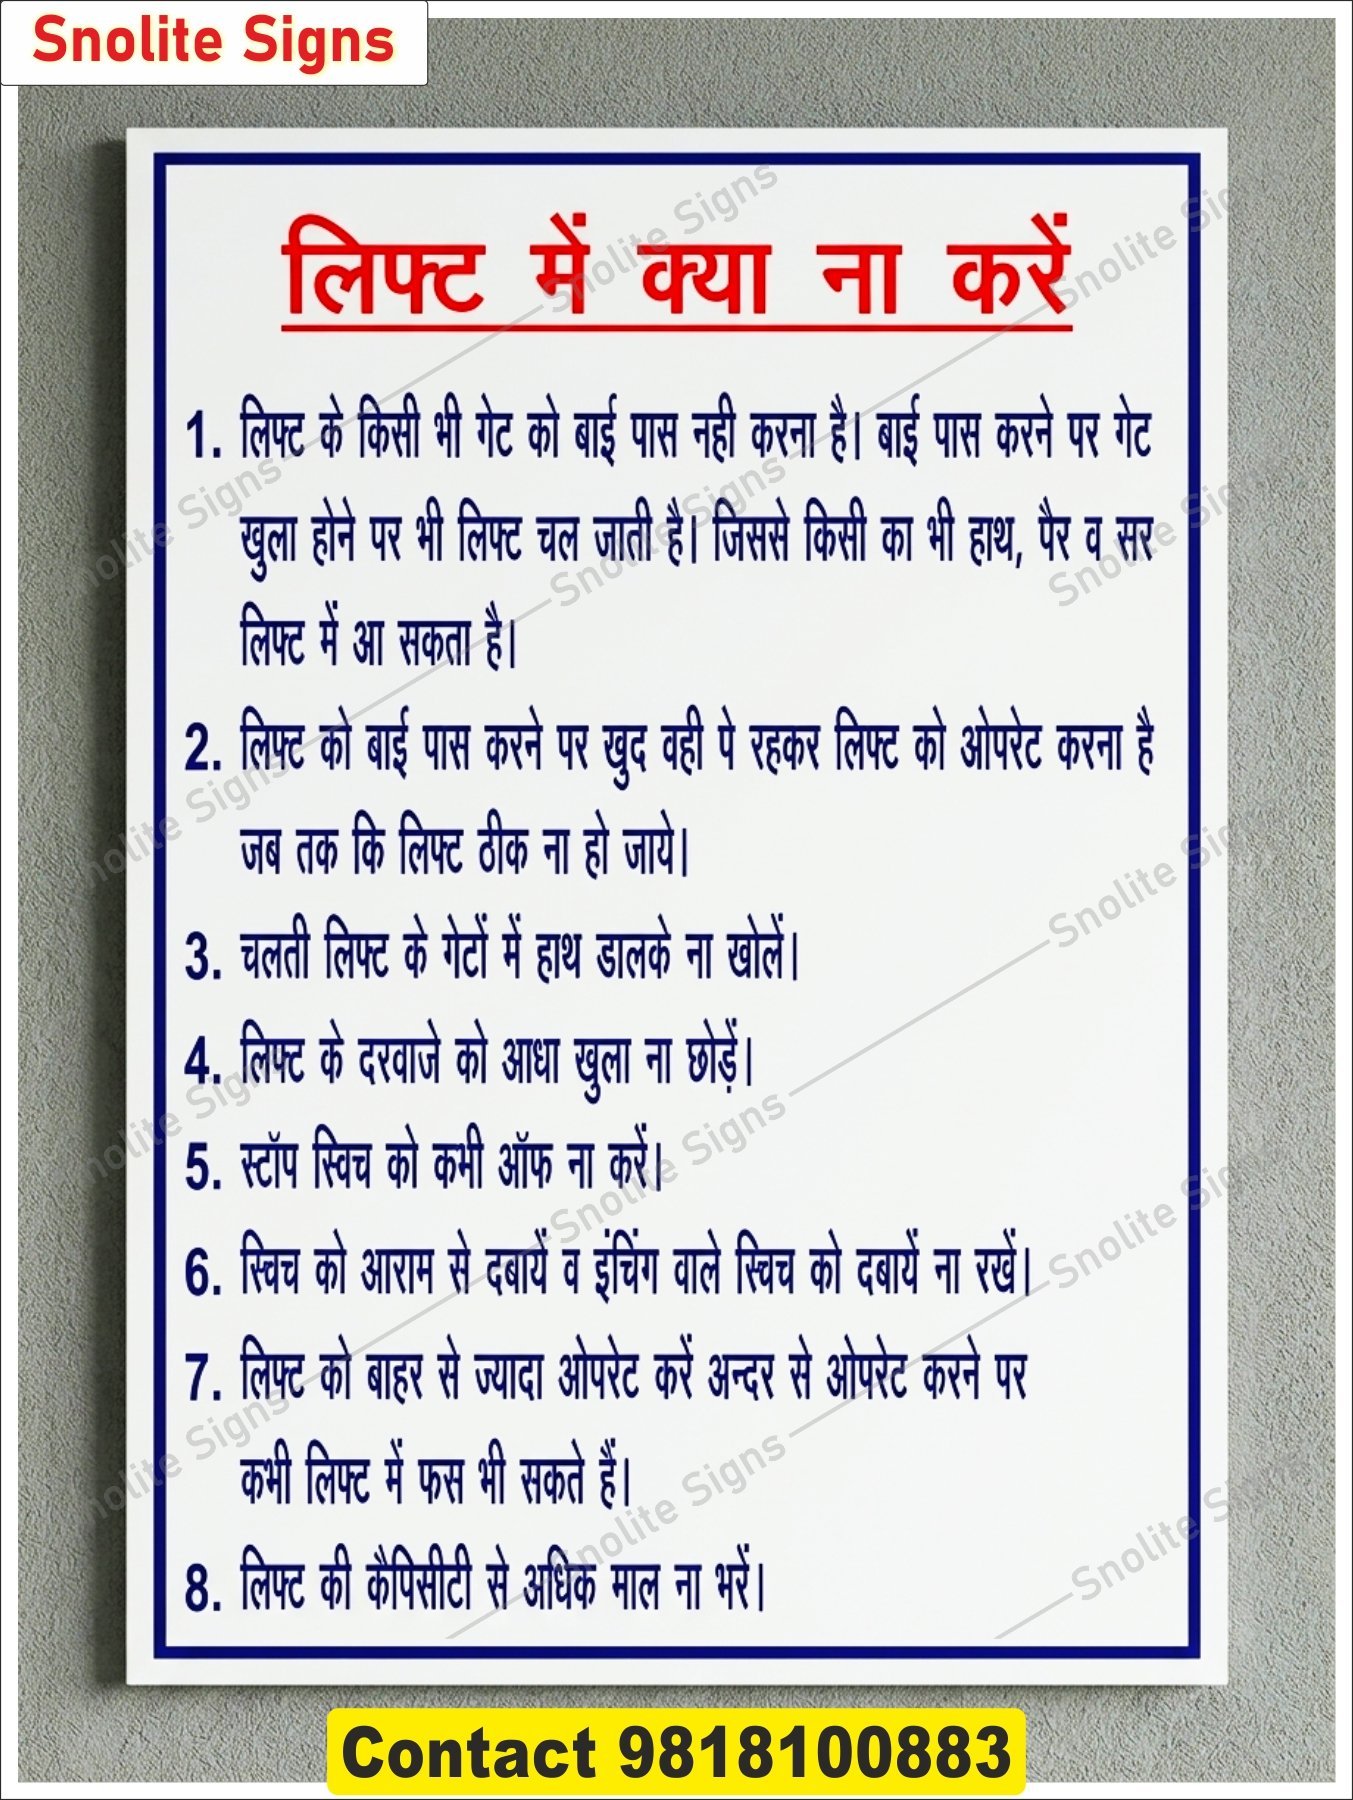 Snolite Signs
लिफ्ट में क्या ना करें
1. लिफ्ट के किसी भी गेट को बाई पास नही करना है। बाई पास करने पर गेट
खुला होने पर भी लिफ्ट चल जाती है। जिससे किसी का भी हाथ, पैर व सर
लिफ्ट में आ सकता है।
2. लिफ्ट को बाई पास करने पर खुद वही पे रहकर लिफ्ट को ओपरेट करना है
जब तक कि लिफ्ट ठीक ना हो जाये।
3. चलती लिफ्ट के गेटों में हाथ डालके ना खोलें।
4. लिफ्ट के दरवाजे को आधा खुला ना छोड़ें।
5. स्टॉप स्विच को कभी ऑफ ना करें।
6. स्विच को आराम से दबायें व इंचिंग वाले स्विच को दबायें ना रखें।
7. लिफ्ट को बाहर से ज्यादा ओपरेट करें अन्दर से ओपरेट करने पर
कभी लिफ्ट में फस भी सकते हैं।
8. लिफ्ट की कैपिसीटी से अधिक माल ना भरें।
Contact 9818100883